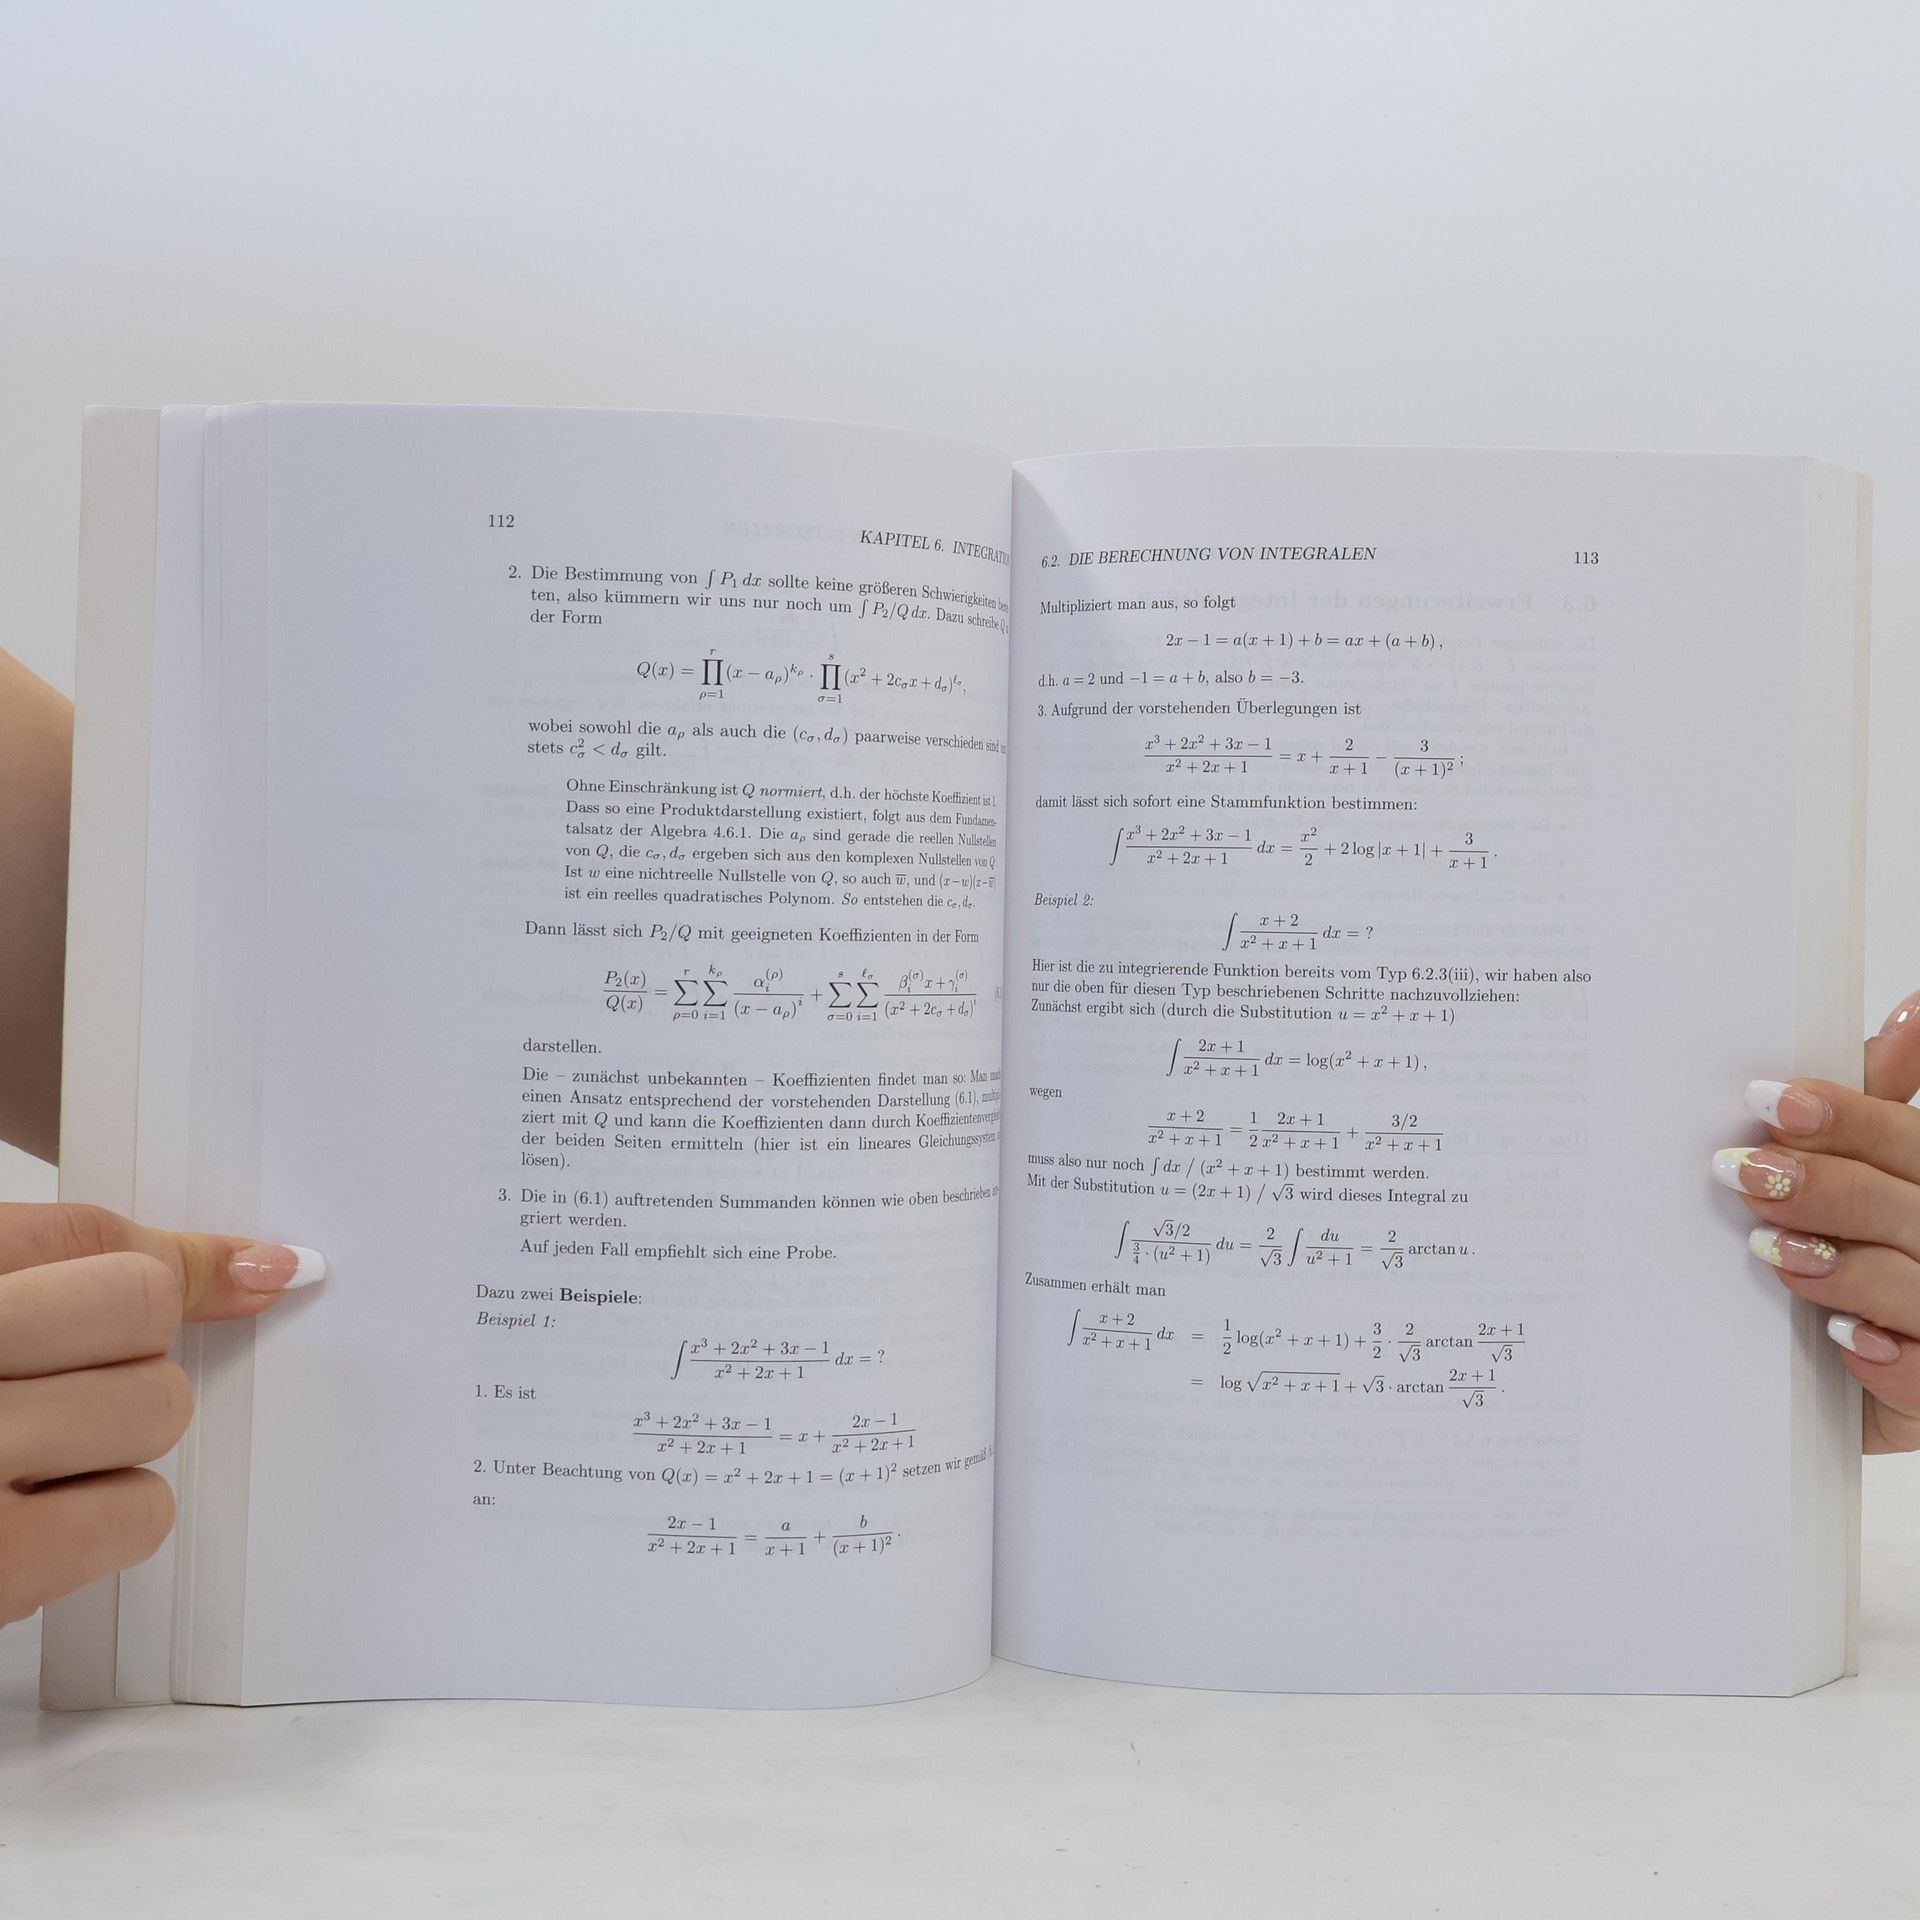 112
KAPITEL 6. INTEGRATIO
2. Die Bestimmung von ∫ P₁ dx sollte keine größeren Schwierigkeiten
ten, also kümmern wir uns nur noch um ∫ P₂/Q dx. Dazu schreibe Q
der Form
Q(x) = ∏_{ρ=1}^{r} (x − a_ρ)^{k_ρ} · ∏_{σ=1}^{s} (x² + 2c_σ x + d_σ)^{ℓ_σ},
wobei sowohl die a_ρ als auch die (c_σ, d_σ) paarweise verschieden sind
stets c_σ² < d_σ gilt.
Ohne Einschränkung ist Q normiert, d.h. der höchste Koeffizient ist 1.
Dass so eine Produktdarstellung existiert, folgt aus dem Fundamen-
talsatz der Algebra 4.6.1. Die a_ρ sind gerade die reellen Nullstellen
von Q, die c_σ, d_σ ergeben sich aus den komplexen Nullstellen von Q.
Ist w eine nichtreelle Nullstelle von Q, so auch w̅, und (x−w)(x−w̅)
ist ein reelles quadratisches Polynom. So entstehen die c_σ, d_σ.
Dann lässt sich P₂/Q mit geeigneten Koeffizienten in der Form
P₂(x)/Q(x) = ∑_{ρ=0}^{r} ∑_{i=1}^{k_ρ} α_i^{(ρ)}/(x − a_ρ)^i + ∑_{σ=0}^{s} ∑_{i=1}^{ℓ_σ} (β_i^{(σ)} x + γ_i^{(σ)})/(x² + 2c_σ + d_σ)^i
darstellen.
Die – zunächst unbekannten – Koeffizienten findet man so: Man
einen Ansatz entsprechend der vorstehenden Darstellung (6.1),
ziert mit Q und kann die Koeffizienten dann durch
der beiden Seiten ermitteln (hier ist ein lineares Gleichungssystem
lösen).
3. Die in (6.1) auftretenden Summanden können wie oben beschrieben
griert werden.
Auf jeden Fall empfiehlt sich eine Probe.
Dazu zwei Beispiele:
Beispiel 1:
∫ (x³ + 2x² + 3x − 1)/(x² + 2x + 1) dx = ?
1. Es ist
(x³ + 2x² + 3x − 1)/(x² + 2x + 1) = x + (2x − 1)/(x² + 2x + 1)
2. Unter Beachtung von Q(x) = x² + 2x + 1 = (x + 1)² setzen wir gemäß
an:
(2x − 1)/(x² + 2x + 1) = a/(x + 1) + b/(x + 1)².
6.2. DIE BERECHNUNG VON INTEGRALEN 113
Multipliziert man aus, so folgt
2x − 1 = a(x + 1) + b = ax + (a + b),
d.h. a = 2 und −1 = a + b, also b = −3.
3. Aufgrund der vorstehenden Überlegungen ist
(x³ + 2x² + 3x − 1)/(x² + 2x + 1) = x + 2/(x + 1) − 3/(x + 1)²;
damit lässt sich sofort eine Stammfunktion bestimmen:
∫ (x³ + 2x² + 3x − 1)/(x² + 2x + 1) dx = x²/2 + 2 log |x + 1| + 3/(x + 1).
Beispiel 2:
∫ (x + 2)/(x² + x + 1) dx = ?
Hier ist die zu integrierende Funktion bereits vom Typ 6.2.3(iii), wir haben also
nur die oben für diesen Typ beschriebenen Schritte nachzuvollziehen:
Zunächst ergibt sich (durch die Substitution u = x² + x + 1)
∫ (2x + 1)/(x² + x + 1) dx = log(x² + x + 1),
wegen
(x + 2)/(x² + x + 1) = 1/2 (2x + 1)/(x² + x + 1) + (3/2)/(x² + x + 1)
muss also nur noch ∫ dx / (x² + x + 1) bestimmt werden.
Mit der Substitution u = (2x + 1) / √3 wird dieses Integral zu
∫ (√3/2)/(3/4 · (u² + 1)) du = 2/√3 ∫ du/(u² + 1) = 2/√3 arctan u.
Zusammen erhält man
∫ (x + 2)/(x² + x + 1) dx = 1/2 log(x² + x + 1) + 3/2 · 2/√3 arctan (2x + 1)/√3
= log √(x² + x + 1) + √3 · arctan (2x + 1)/√3.